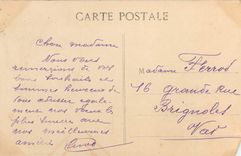 CARTE POSTALE
Chère madame
Nous vous
remercions de vos
bons souhaits et
sommes heureux de
vous adresser égale-
ment nos vœux les
plus sincères avec
nos meilleures
amitiés
Madame Ferrod
16 grande rue
Brignoles
Var